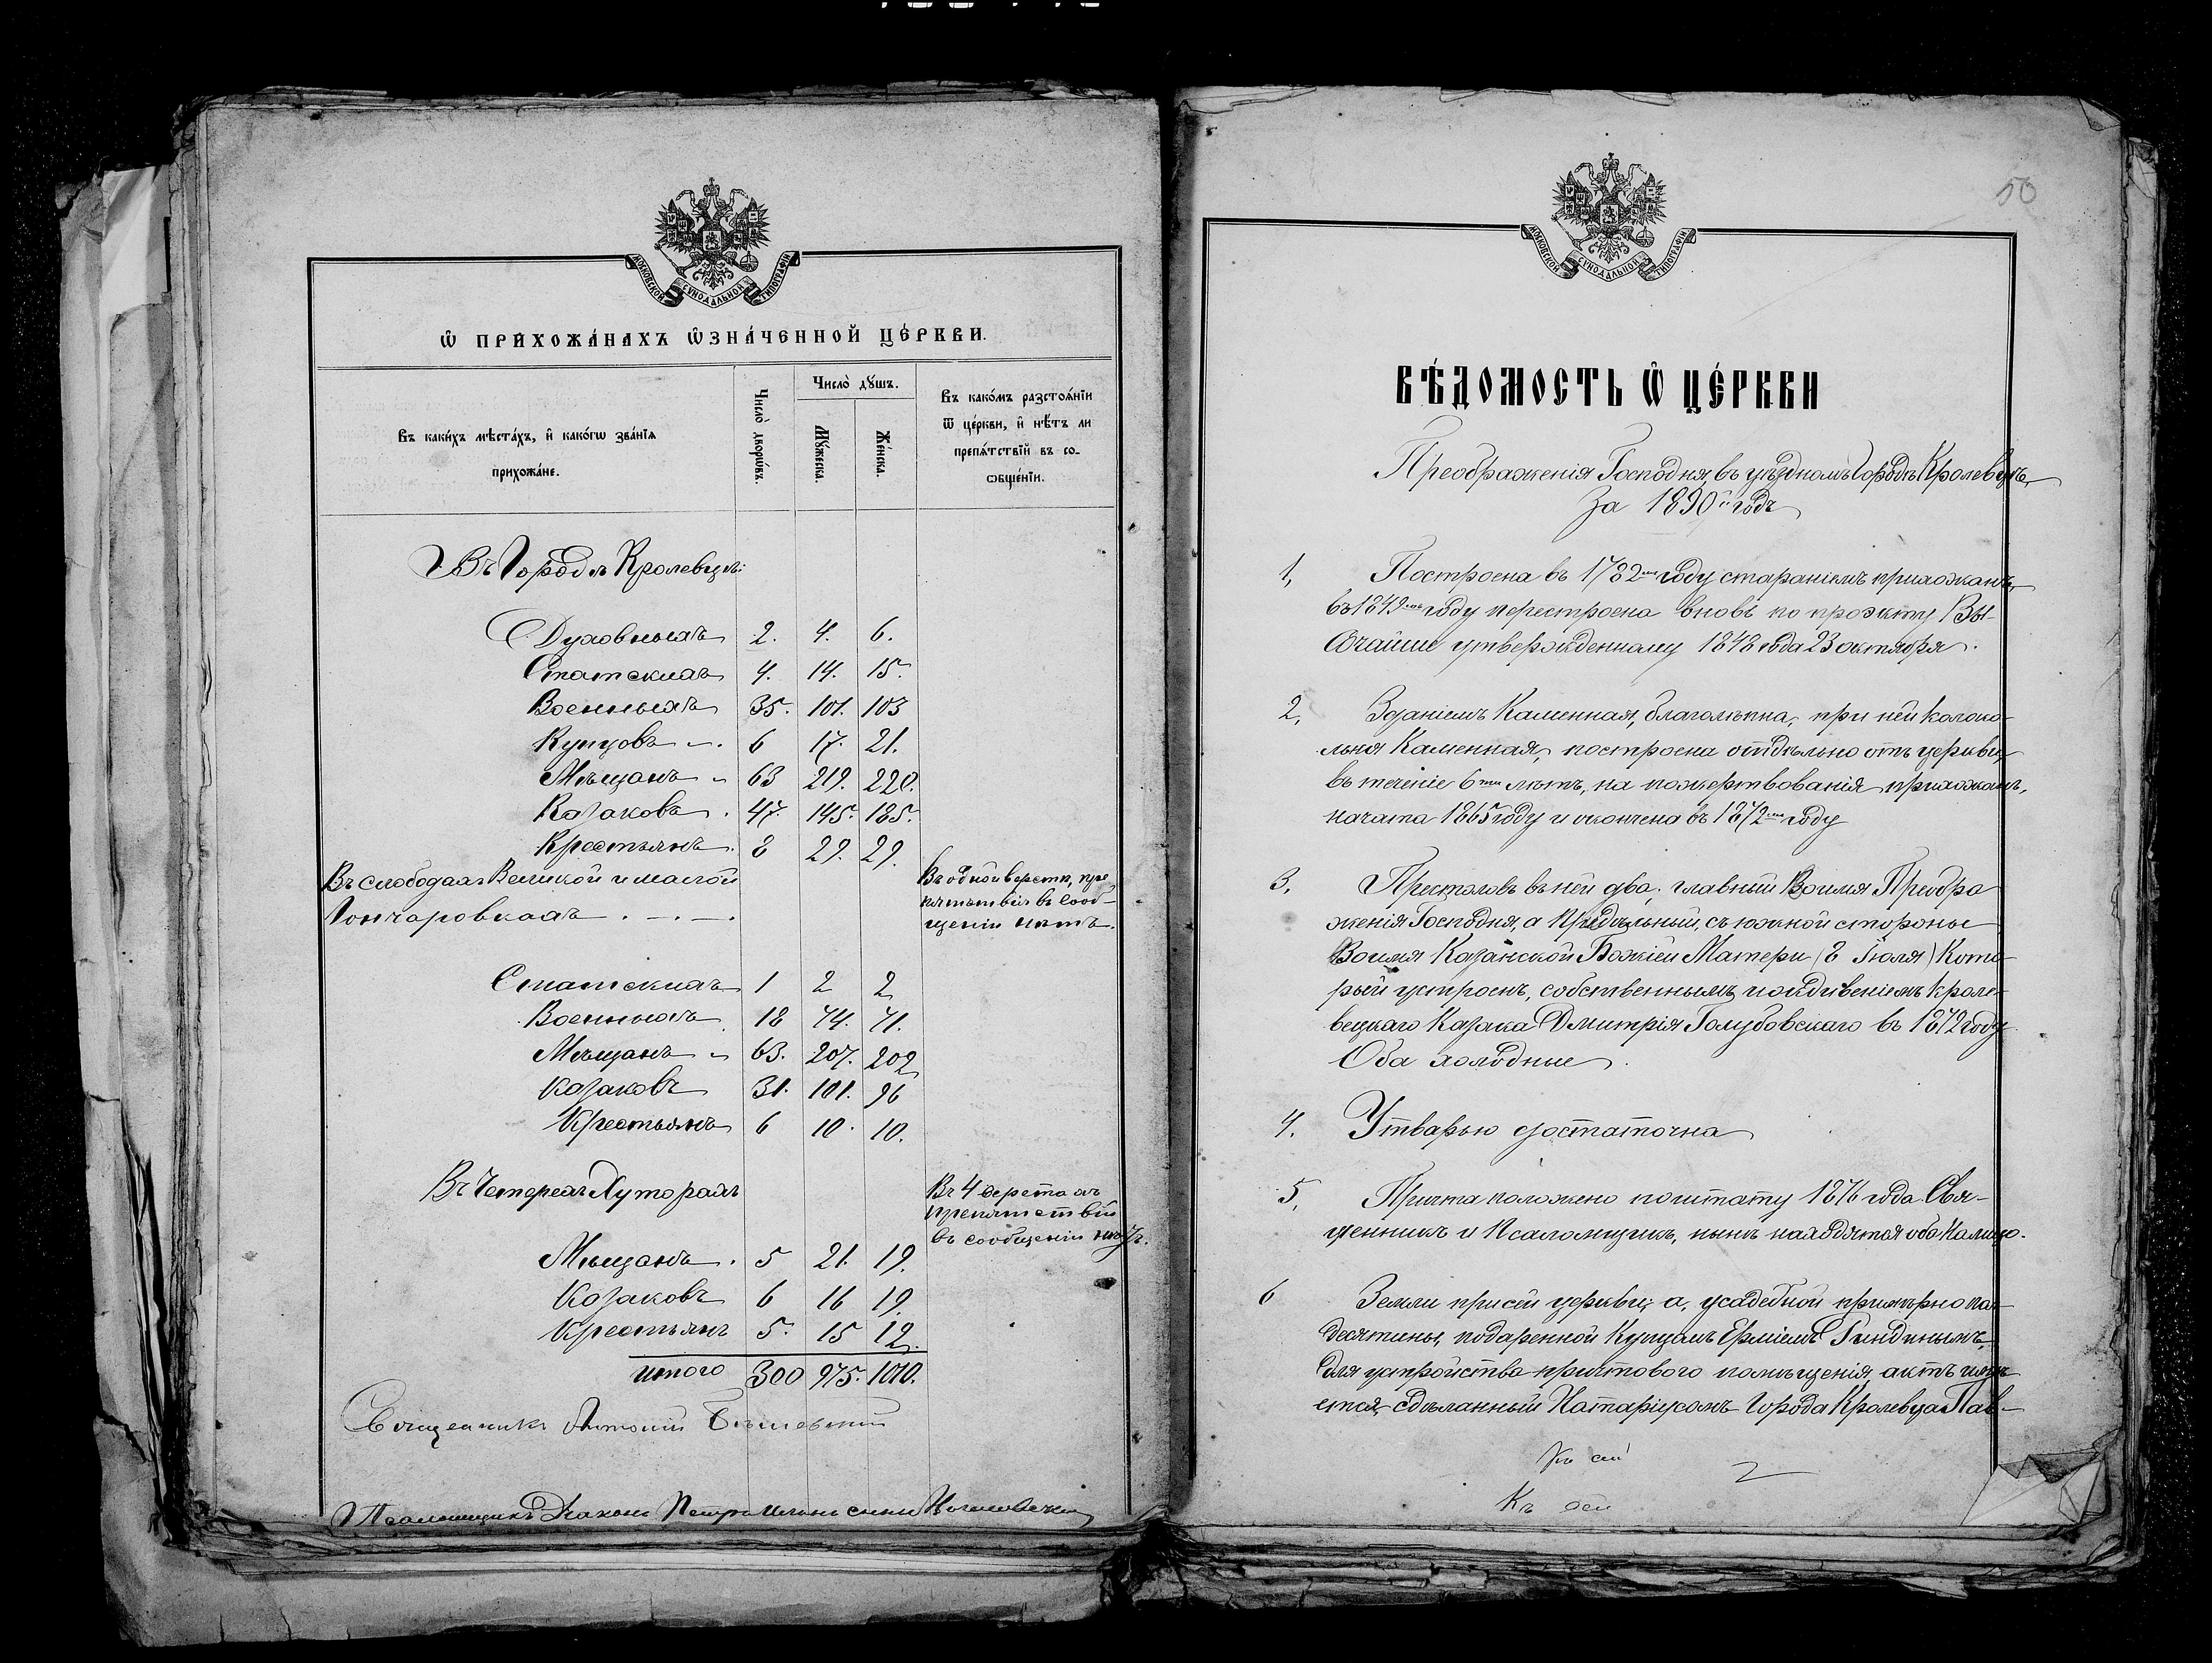 МОСКОВСКОЙ СѴНОДАЛЬНОЙ ТИПОГРАФІИ
Ѡ ПРИХОЖА́НАХЪ ѠЗНА́ЧЕННОЙ ЦЕ́РКВИ.
Въ каки́хъ мѣста́хъ, и҆ како́гѡ зва́нїѧ прихожа́не.
Число̀ дворѡ́въ.
Число̀ дꙋ́шъ.
Мꙋ́жеска.
Же́нска.
Въ како́мъ разстоѧ́нїи
ѿ це́ркви, и҆ нѣ́тъ ли
препѧ́тствїй въ со-
ѻбще́нїи.
Въ Городѣ Кролевцѣ:
Духовныхъ 2. 4. 6.
Статскихъ 4. 14. 15.
Военныхъ 35. 101. 103
Купцовъ 6 17. 21.
Мѣщанъ 63 219. 220.
Козаковъ 47. 145. 185.
Крестьянъ 8 29. 29.
Въ слободахъ Великой и малой
Гончаровкахъ
Въ одной верстѣ, пре-
пятствія въ сооб-
щеніи нѣтъ.
Статскихъ 1 2 2
Военныхъ 18 74. 71.
Мѣщанъ 63. 207. 202
Козаковъ 31. 101. 96
Крестьянъ 6 10. 10.
Въ Четырехъ Хуторахъ
Въ 4 верстахъ
препятствій
въ сообщеніи нѣтъ.
Мѣщанъ 5 21. 19.
Козаковъ 6 16 19.
Крестьянъ 5. 15 12.
итого 300 975. 1010.
Священникъ Антоній
Псаломщикъ Діаконъ Петръ
50
МОСКОВСКОЙ СѴНОДАЛЬНОЙ ТИПОГРАФІИ
ВѢ́ДОМОСТЬ Ѡ ЦЕ́РКВИ
Преображенія Господня, въ уѣздномъ Городѣ Кролевцѣ,
За 1890й годъ
1, Построена въ 1782мъ году стараніемъ прихожанъ,
въ 1849мъ году перестроена вновь по проэкту Вы-
сочайше утвержденному 1848 года 23 октября.
2, Зданіемъ Каменная, благолѣпна, при ней колоко-
льня Каменная, построена отдѣльно отъ церкви,
въ теченіе 6ти лѣтъ, на пожертвованія прихожанъ,
начата 1865 году и окончена въ 1872мъ году
3, Престоловъ въ ней два; главный Во имя Преобра-
женія Господня, а придѣльный, съ южной стороны
Во имя Казанской Божіей Матери (8 Іюля) Кото-
рый устроенъ, собственнымъ иждивеніемъ Кроле-
вецкаго Козака Дмитрія Голубовскаго въ 1872 году
Оба холодные.
4. Утварью достаточна
5, Причта положено по штату 1876 года Свя-
щенникъ и Псаломщикъ, нынѣ находятся оба на лицо.
6 Земли при сей церкви; а, усадебной примѣрно пол-
десятины, подаренной Купцамъ Ермiемъ Гиндинымъ,
для устройства причтового помѣщенія, актъ имѣ-
ется, сдѣланный Натаріусомъ Города Кролевца Пав-
Къ сей
Къ сей